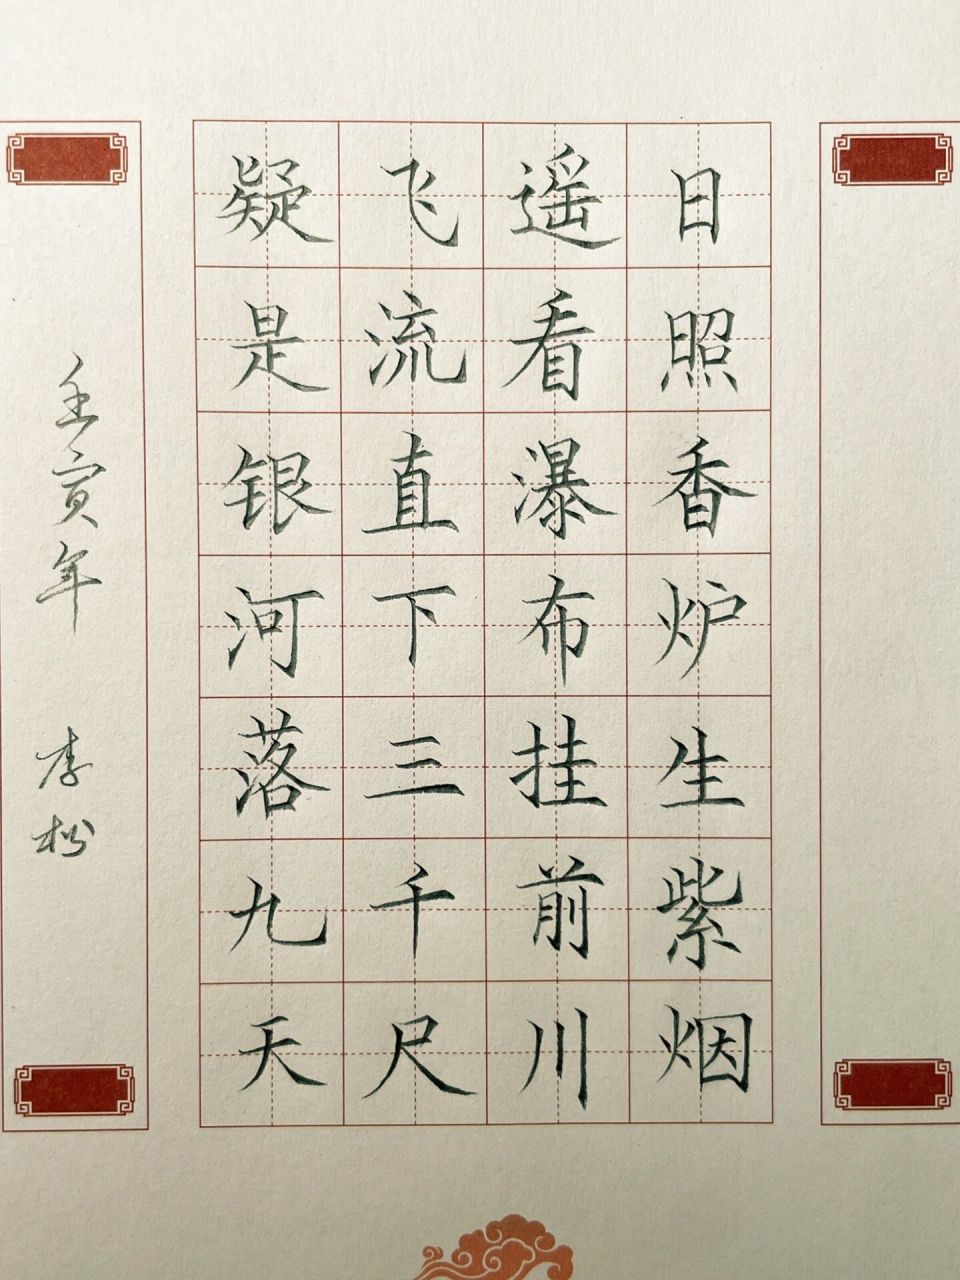 日照香炉生紫烟
遥看瀑布挂前川
飞流直下三千尺
疑是银河落九天
壬寅年 李松